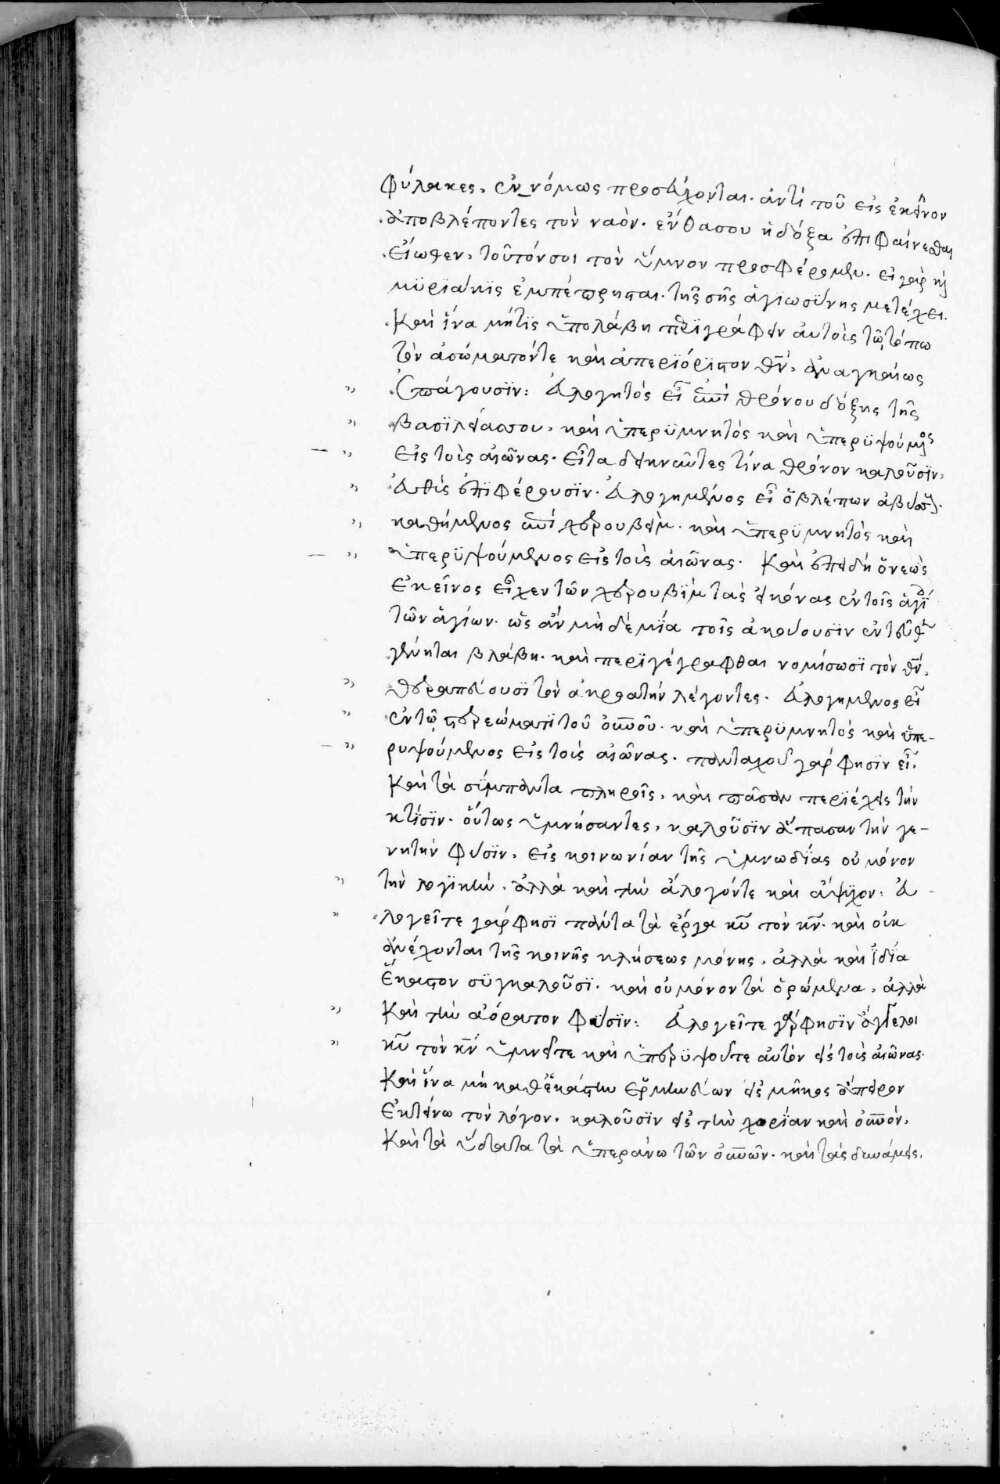 φύλακες, ἐν νόμως προσεύχονται. ἀντὶ τοῦ εἰς ἐκεῖνον
ἀποβλέποντες τὸν ναὸν. ἔνθα σου ἡ δόξα ἐπιφαίνεσθαι
εἴωθεν, τοῦτόν σοι τὸν ὕμνον προσφέρομεν. εἰ γὰρ κ
μϋρϊάκϊς ἐμπέπρησται. τῆς σῆς ἁγϊωσύνης μετέχει.
Καὶ ἵνα μήτϊς ὑπολάβη περϊγράφειν αὐτοὺς τῶ τόπω
τὸν ἀσώματόν τε καὶ ἀπερϊόρϊστον θν, ἀναγκαίως
” ἐπάγουσϊν: Εὐλογητὸς εἶ ἐπὶ θρόνου δόξης τῆς
” βασϊλείας σου, καὶ ὑπερϋμνητὸς καὶ ὑπερϋψούμενος
— ” εἰς τοὺς αἰῶνας. εἶτα δεικνῦντες τίνα θρόνον καλοῦσϊν,
” εὐθὺς ἐπϊφέρουσϊν. Εὐλογημένος εἶ ὁ βλέπων ἀβύσσους.
” καθήμενος ἐπὶ χερουβεὶμ. καὶ ὑπερϋμνητὸς καὶ
— ” ὑπερϋψούμενος εἰς τοὺς αἰῶνας. Καὶ ἐπειδὴ ὁ νεὼς
ἐκεῖνος εἶχεν τῶν χερουβϊμ τὰς εἰκόνας ἐν τοῖς ἁγί
τῶν ἁγίων. ὡς ἂν μὴδὲ μία τοῖς ἀκούουσιν ἐντεῦθεν
γένηται βλάβη. καὶ περϊγέγραφθαι νομίσωσϊ τὸν θν,
” θεραπεύουσϊ τὸν ἀκροατὴν λέγοντες. Εὐλογημένος εἶ
” ἐν τῶ στερεώματϊ τοῦ οὐνοῦ. καὶ ὑπερϋμνητὸς καὶ ὑπε-
— ” ρυψούμενος εἰς τοὺς αἰῶνας. πανταχοῦ γάρ φησϊν εἶ,
Καὶ τὰ σύμπαντα πληροῖς, καὶ πᾶσαν περϊέχεις τὴν
κτίσϊν. οὕτως ὑμνήσαντες, καλοῦσϊν ἅπασαν τὴν γε-
νητὴν φύσϊν, εἰς κοινωνίαν τῆς ὑμνωδίας οὐ μόνον
” τὴν λογϊκὴν. ἀλλὰ καὶ τὴν ἄλογόν τε καὶ ἄψϋχον: Εὐ-
” λογεῖτε γάρ φησϊ πάντα τὰ ἔργα κυ τὸν κν. καὶ οὐκ
ἀνέχονται τῆς κοινῆς κλήσεως μόνης, ἀλλὰ καὶ ἰδία
ἕκαστον συγκαλοῦσϊ. καὶ οὐ μόνον τὰ ὁρώμενα, ἀλλὰ
” Καὶ τὴν ἀόρατον φύσϊν: Εὐλογεῖτε γάρ φησϊν ἄγγελοι
” κυ τὸν κν ὑμνεῖτε καὶ ὑπερϋψοῦτε αὐτὸν εἰς τοὺς αἰῶνας.
Καὶ ἵνα μὴ καθ’ ἕκάστην ἑρμηνεύων εἰς μῆκος ἄπειρον
ἐκτείνω τὸν λόγον, καλοῦσϊν εἰς τὴν χορείαν καὶ οὐνὸν,
Καὶ τὰ ὕδατα τὰ ὑπεράνω τῶν οὐνῶν. καὶ τὰς δυνάμεις.